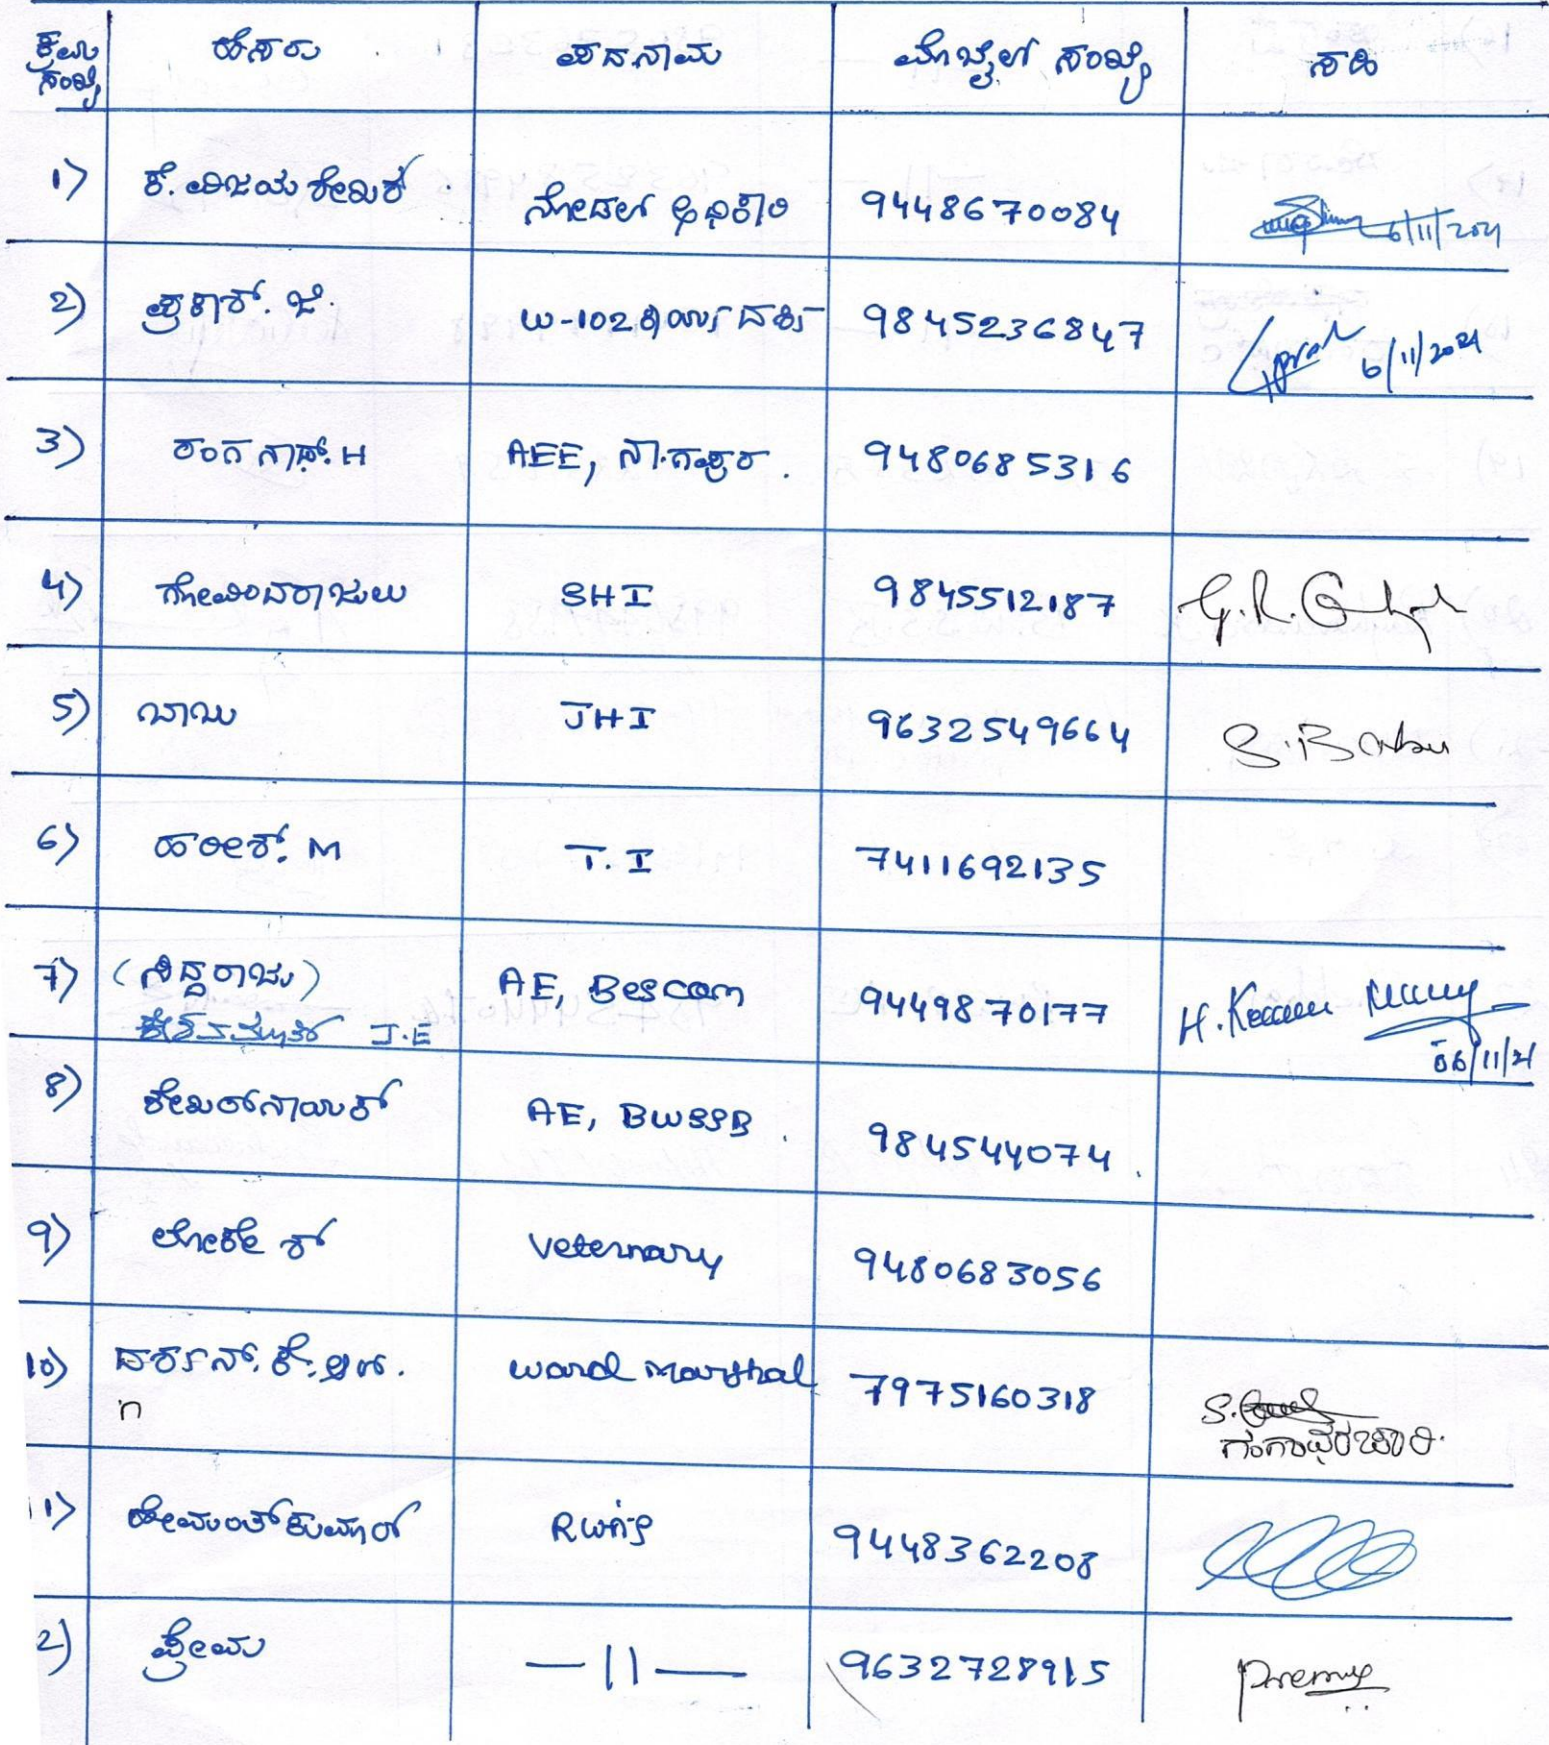 ಕ್ರಮ ಸಂಖ್ಯೆ ಹೆಸರು ಪದನಾಮ ಮೊಬೈಲ್ ಸಂಖ್ಯೆ ಸಹಿ
1) ಕೆ. ವಿಜಯ ಶೇಖರ್ ನೋಡಲ್ ಅಧಿಕಾರಿ 9448670084 6/11/2021
2) ಪ್ರಕಾಶ್. ಜೆ. ಬಿ-102 ಕಾರ್ಯದರ್ಶಿ 9845236847 6/11/2021
3) ರಂಗನಾಥ್. H AEE, ನಾ.ಗಪುರ. 9480685316
4) ಗೋವಿಂದರಾಜುಲು SHI 9845512187 G.R.
5) ಬಾಬು JHI 9632549664 S. Babu
6) ಹರೀಶ್. M T. I 7411692135
7) (ಸಿದ್ದರಾಜು) AE, Bescom 9449870177 H.
J.E 06/11/21
8) ಶೇಖರ್‌ನಾಯಕ್ AE, BWSSB. 984544074.
9) ಲೋಕೇಶ್ Veternary 9480683056
10) ದರ್ಶನ್. ಕೆ. ಆರ್. ward marshal 7975160318 S.
ಗಂಗಾಧರಚಾರಿ.
11) ಹೇಮಂತ್ ಕುಮಾರ್ RWA's 9448362208
2) ಪ್ರೇಮ —11— 9632728915 Prema